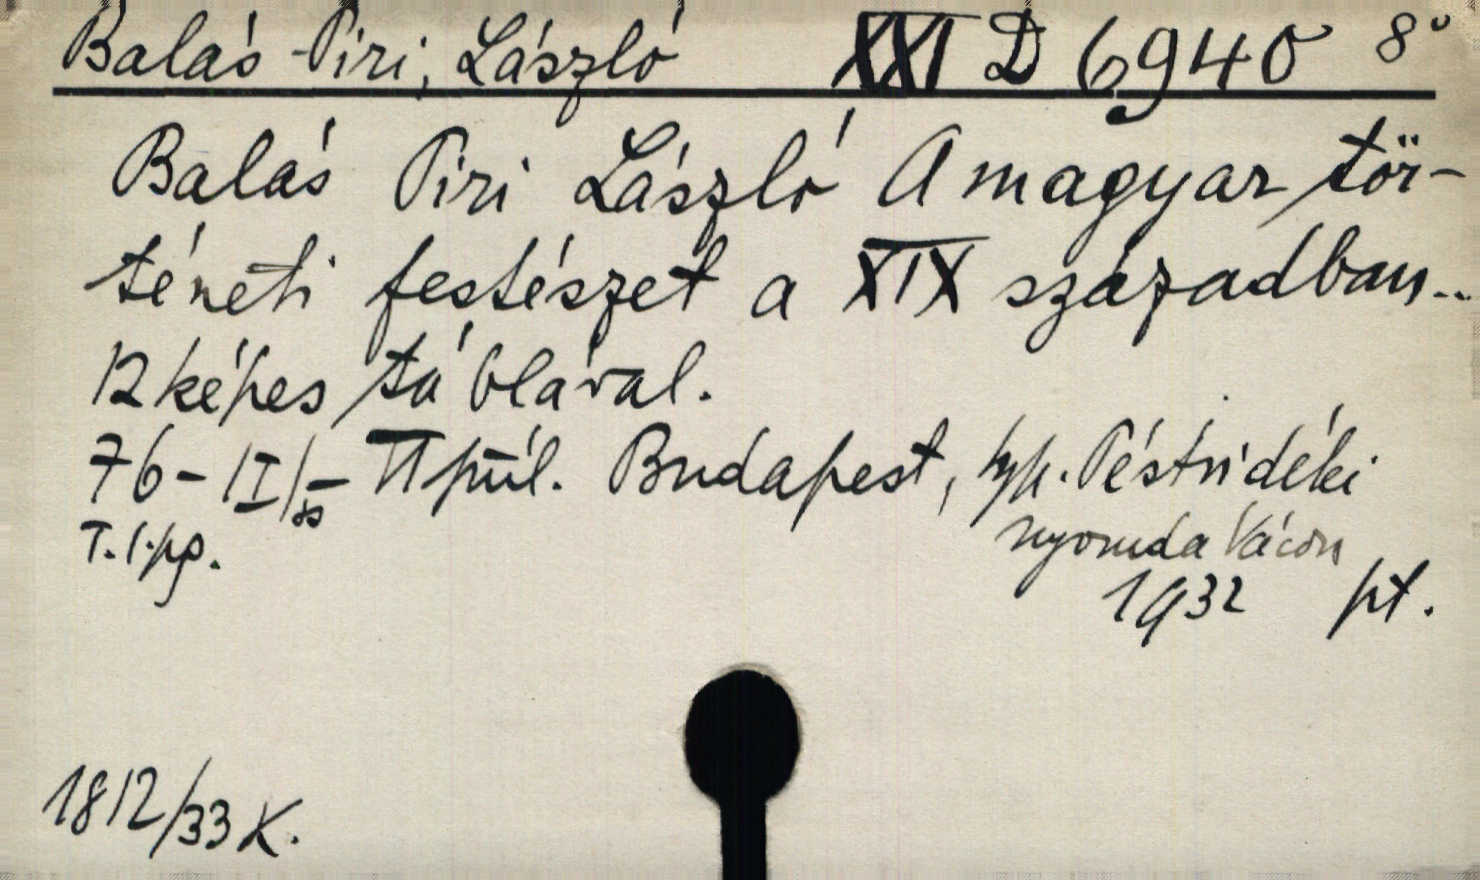 Balás-Piri, László XXI D 6940 8°
Balás Piri László A magyar tör-
téneti festészet a XIX században..
12 képes táblával.
76- II Budapest, typ. Péstvidéki
T. 1. pg. nyomda Vácon
1932 pt.
1812/33 K.